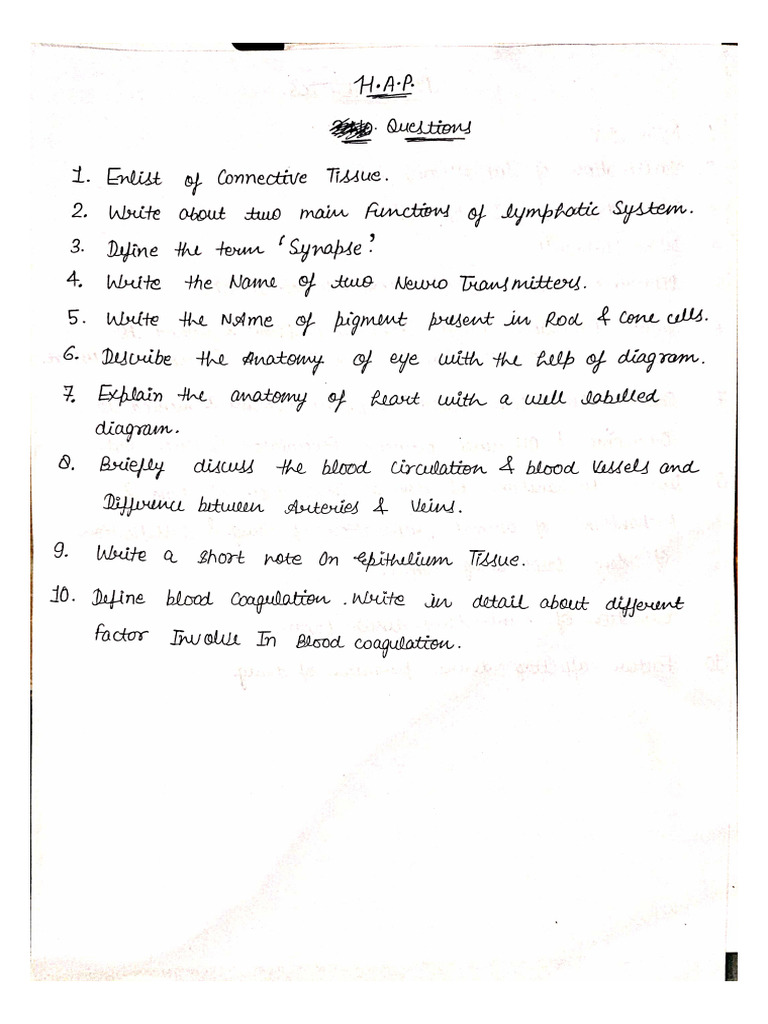 H.A.P.
Questions
1. Enlist of Connective Tissue.
2. Write about two main Functions of lymphatic System.
3. Define the term 'Synapse'.
4. Write the Name of two Neuro Transmitters.
5. Write the NAme of pigment present in Rod & Cone cells.
6. Describe the Anatomy of eye with the help of diagram.
7. Explain the anatomy of heart with a well labelled
diagram.
8. Briefly discuss the blood circulation & blood Vessels and
Difference between Arteries & Veins.
9. Write a short note On Epithelium Tissue.
10. Define blood Coagulation. Write in detail about different
factor Involve In Blood coagulation.